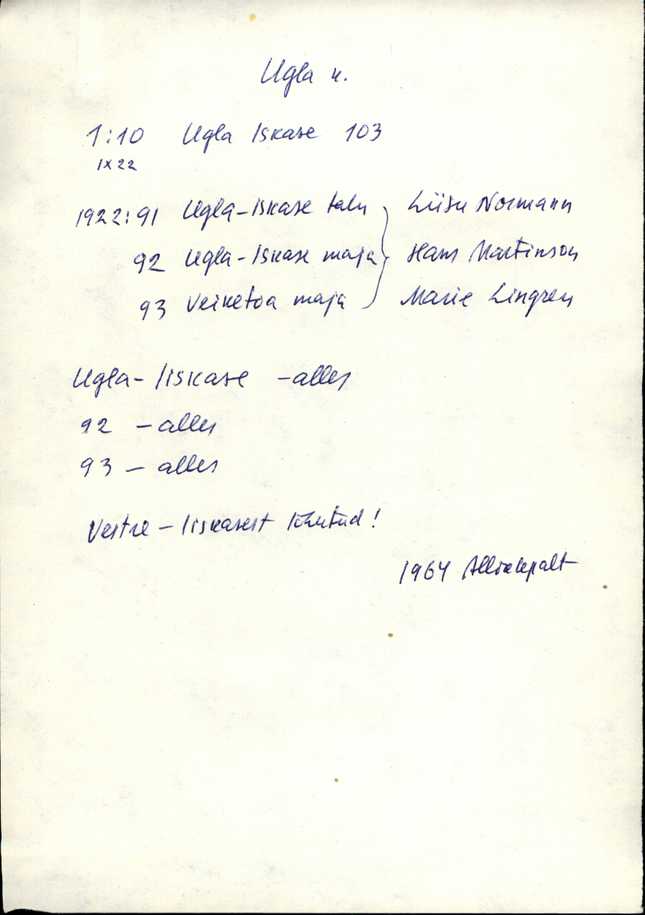 Ugla k.
1:10 Ugla Iskase 103
1x22
1922: 91 Ugla-Iskase talu } Liisu Normann
92 Ugla-Iskase maja } Hans Martinson
93 Veiketoa maja } Marie Lingren
Ugla-Iiskase - alles
92 - alles
93 - alles
- Iiskasest lõhutud!
1964